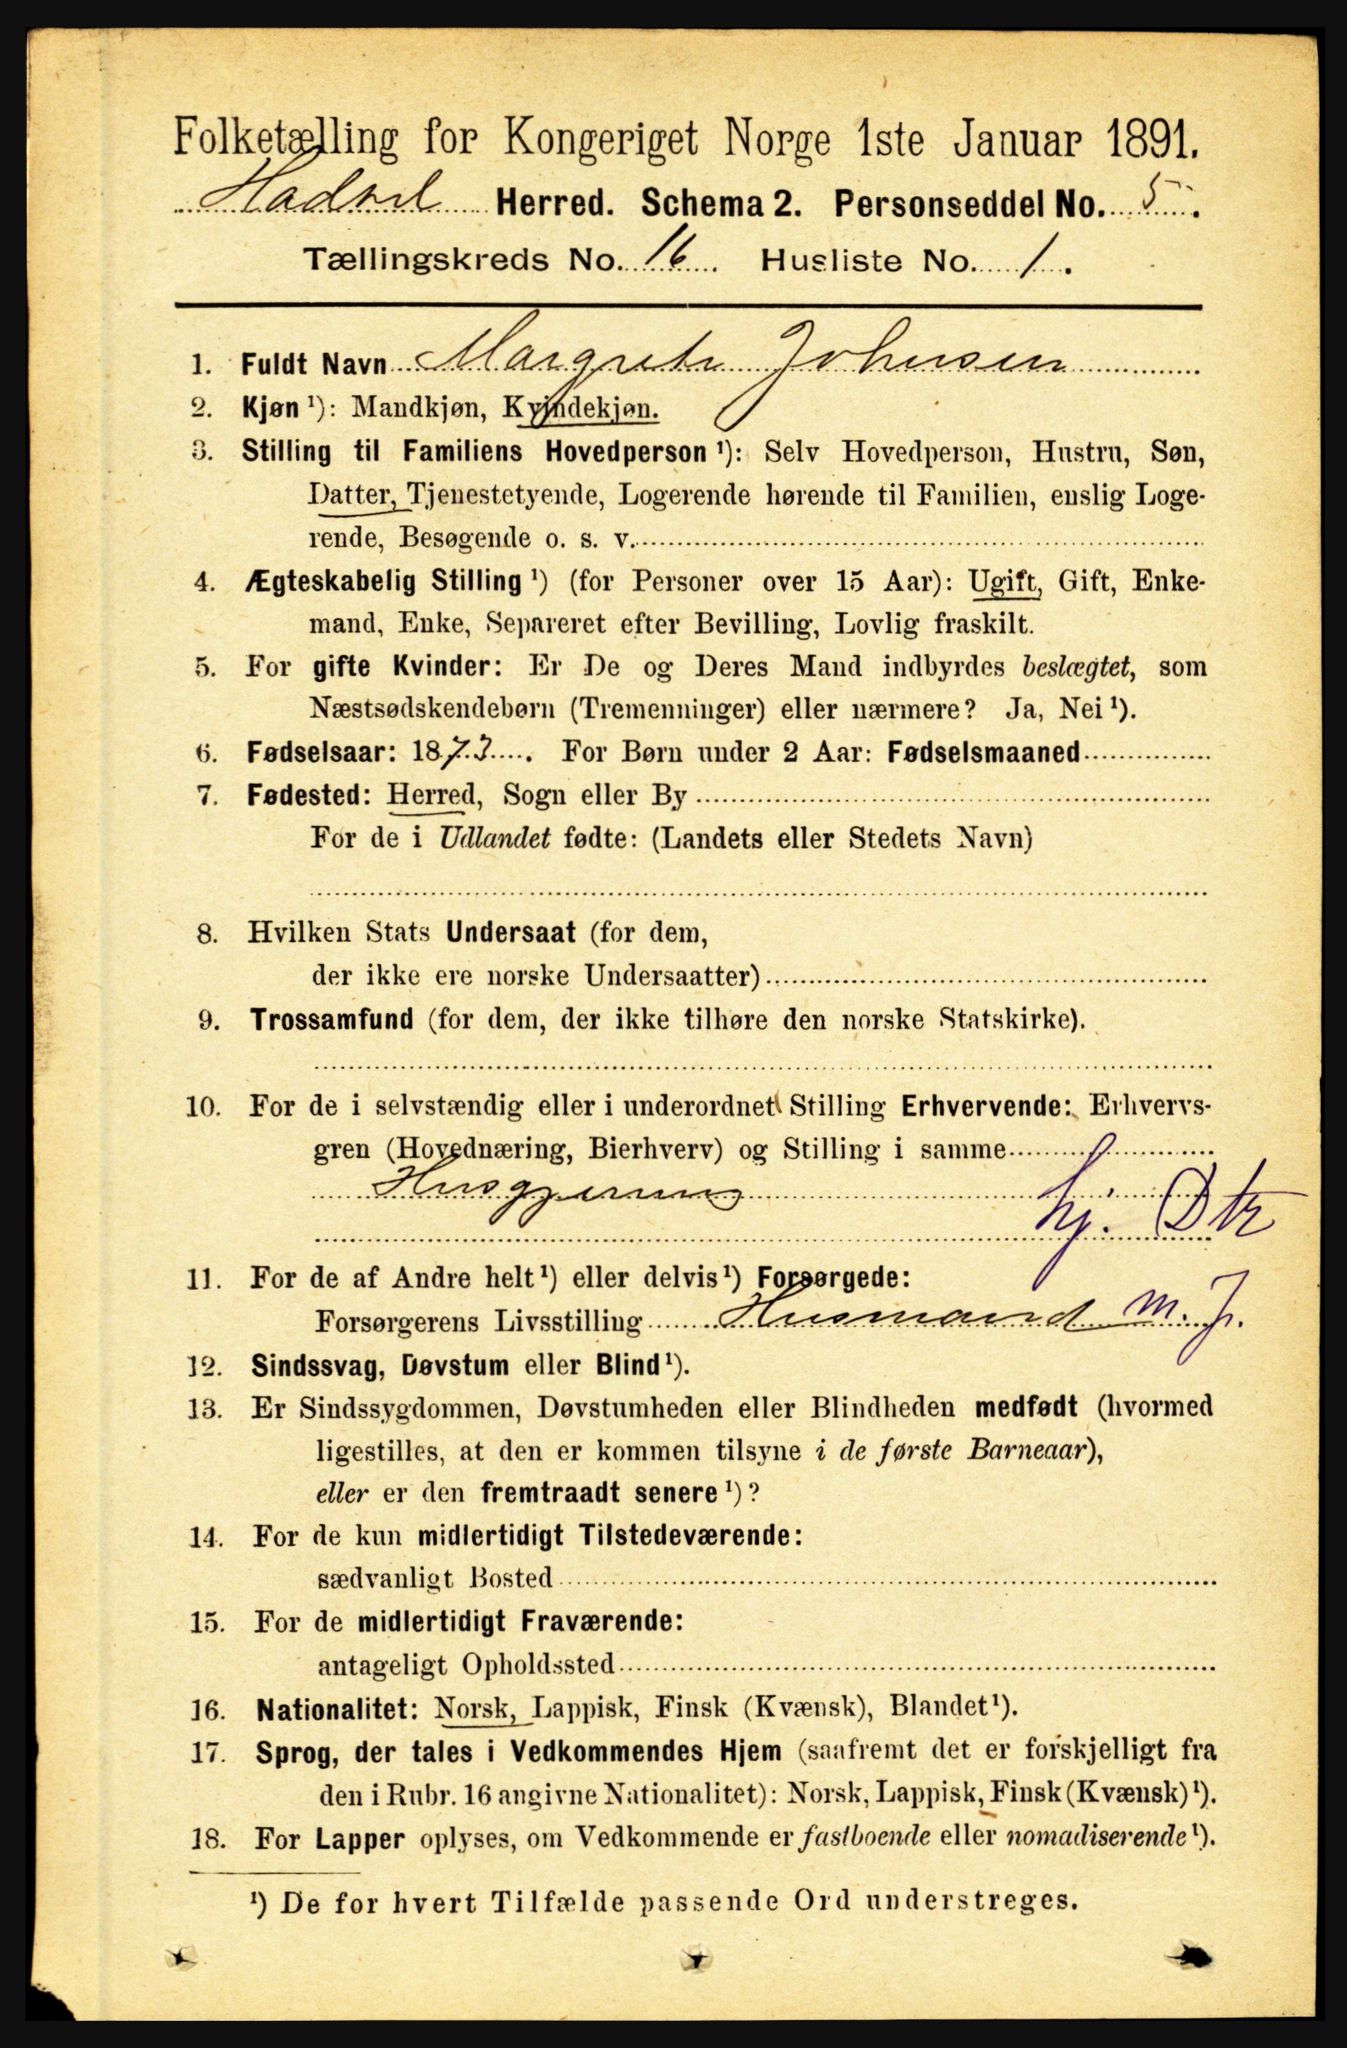 Folketælling for Kongeriget Norge 1ste Januar 1891.
Hadsel Herred. Schema 2. Personseddel No. 5.
Tællingskreds No. 16. Husliste No. 1.
1. Fuldt Navn Margrete Johnsen
2. Kjøn ¹): Mandkjøn, Kvindekjøn.
3. Stilling til Familiens Hovedperson ¹): Selv Hovedperson, Hustru, Søn,
Datter, Tjenestetyende, Logerende hørende til Familien, enslig Loge-
rende, Besøgende o. s. v.
4. Ægteskabelig Stilling ¹) (for Personer over 15 Aar): Ugift, Gift, Enke-
mand, Enke, Separeret efter Bevilling, Lovlig fraskilt.
5. For gifte Kvinder: Er De og Deres Mand indbyrdes beslægtet, som
Næstsødskendebørn (Tremenninger) eller nærmere? Ja, Nei ¹).
6. Fødselsaar: 1873. For Børn under 2 Aar: Fødselsmaaned
7. Fødested: Herred, Sogn eller By
For de i Udlandet fødte: (Landets eller Stedets Navn)
8. Hvilken Stats Undersaat (for dem,
der ikke ere norske Undersaatter)
9. Trossamfund (for dem, der ikke tilhøre den norske Statskirke).
10. For de i selvstændig eller i underordnet Stilling Erhvervende: Erhvervs-
gren (Hovednæring, Bierhverv) og Stilling i samme
Husgjerning
hj. Dtr
11. For de af Andre helt ¹) eller delvis ¹) Forsørgede:
Forsørgerens Livsstilling Husmand M. J.
12. Sindssvag, Døvstum eller Blind ¹).
13. Er Sindssygdommen, Døvstumheden eller Blindheden medfødt (hvormed
ligestilles, at den er kommen tilsyne i de første Barneaar),
eller er den fremtraadt senere ¹)?
14. For de kun midlertidigt Tilstedeværende:
sædvanligt Bosted
15. For de midlertidigt Fraværende:
antageligt Opholdssted
16. Nationalitet: Norsk, Lappisk, Finsk (Kvænsk), Blandet ¹).
17. Sprog, der tales i Vedkommendes Hjem (saafremt det er forskjelligt fra
den i Rubr. 16 angivne Nationalitet): Norsk, Lappisk, Finsk (Kvænsk) ¹).
18. For Lapper oplyses, om Vedkommende er fastboende eller nomadiserende ¹).
¹) De for hvert Tilfælde passende Ord understreges.